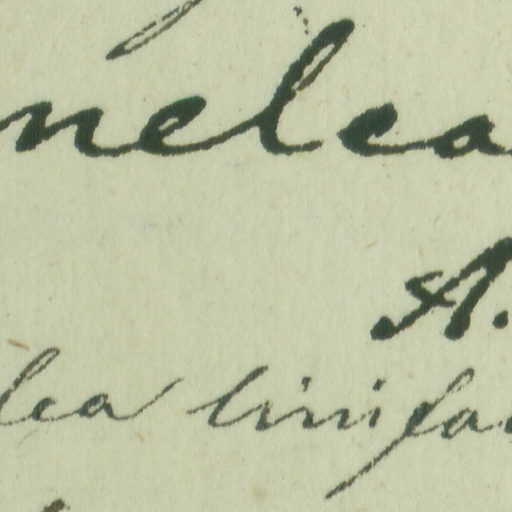 nelea
A.
lea linifo